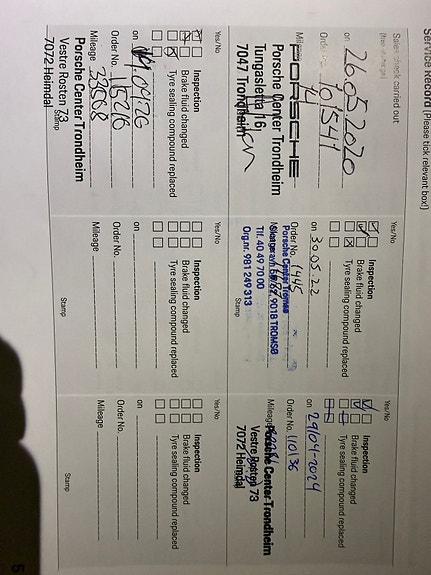 Service Record (Please tick relevant box!)
Sales check carried out
(free of charge)
on 26.05.2020
Order No.
Mileage
PORSCHE
Porsche Center Trondheim
Tungasletta 16
7047 Trondheim
Yes/No
Inspection
Brake fluid changed
Tyre sealing compound replaced
on 30.05.22
Order No. 1445
Mileage
Porsche Center Tromsø
9018 TROMSØ
Tlf. 40 49 70 00
Org.nr. 981 249 313
Stamp
Yes/No
Inspection
Brake fluid changed
Tyre sealing compound replaced
on 29/04-2024
Order No. 110136
Mileage
Porsche Center Trondheim
Vestre Rosten 73
7072 Heimdal
Yes/No
Inspection
Brake fluid changed
Tyre sealing compound replaced
on
Order No. 115216
Mileage 33568
Porsche Center Trondheim
Vestre Rosten 73
7072 Heimdal
Stamp
Yes/No
Inspection
Brake fluid changed
Tyre sealing compound replaced
on
Order No.
Mileage
Stamp
Yes/No
Inspection
Brake fluid changed
Tyre sealing compound replaced
on
Order No.
Mileage
Stamp
5